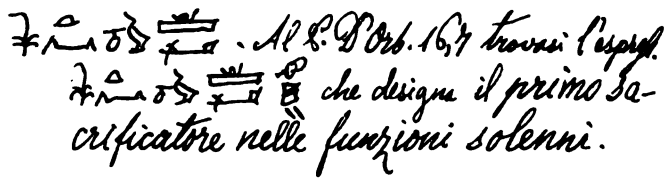 . Al P. D'Orb. 16,7 trovasi l'espress.
che designa il primo sa-
crificatore nelle funzioni solenni.